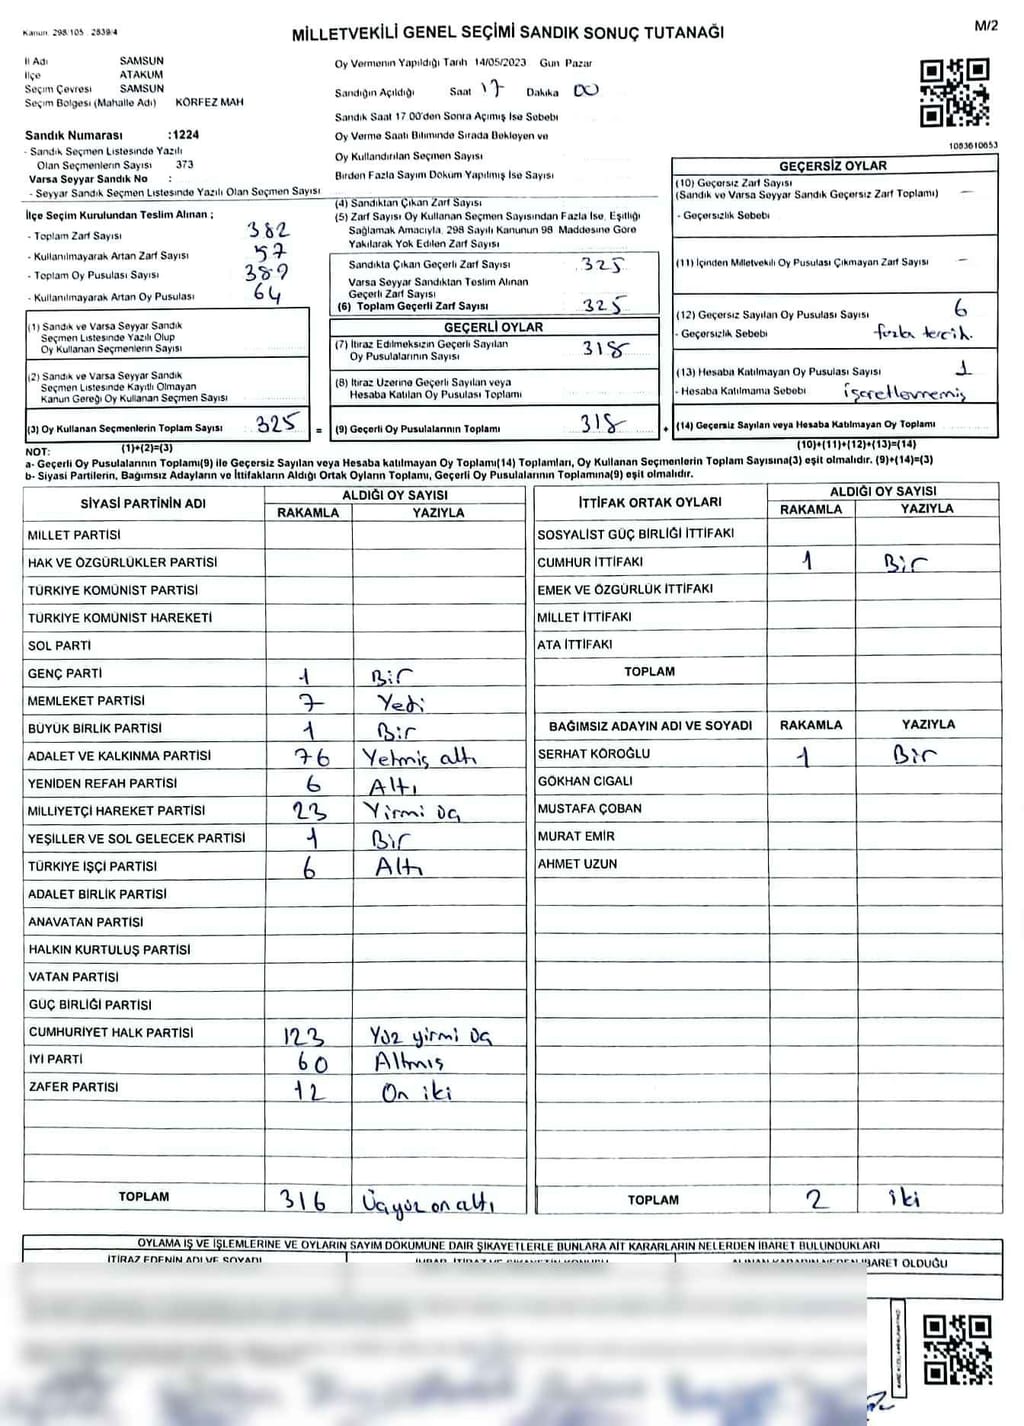 Kanun: 298/105 2839/4
MİLLETVEKİLİ GENEL SEÇİMİ SANDIK SONUÇ TUTANAĞI
M/2
İl Adı SAMSUN
İlçe ATAKUM
Seçim Çevresi SAMSUN
Seçim Bölgesi (Mahalle Adı) KÖRFEZ MAH
Sandık Numarası :1224
- Sandık Seçmen Listesinde Yazılı
Olan Seçmenlerin Sayısı 373
Varsa Seyyar Sandık No :
- Seyyar Sandık Seçmen Listesinde Yazılı Olan Seçmen Sayısı
Oy Vermenin Yapıldığı Tarih 14/05/2023 Gün Pazar
Sandığın Açıldığı Saat 17 Dakika 00
Sandık Saat 17.00'den Sonra Açılmış İse Sebebi
Oy Verme Saati Bitiminde Sırada Bekleyen ve
Oy Kullandırılan Seçmen Sayısı
Birden Fazla Sayım Döküm Yapılmış İse Sayısı
1083610653
İlçe Seçim Kurulundan Teslim Alınan ;
- Toplam Zarf Sayısı 382
- Kullanılmayarak Artan Zarf Sayısı 57
- Toplam Oy Pusulası Sayısı 389
- Kullanılmayarak Artan Oy Pusulası 64
(1) Sandık ve Varsa Seyyar Sandık
Seçmen Listesinde Yazılı Olup
Oy Kullanan Seçmenlerin Sayısı
(2) Sandık ve Varsa Seyyar Sandık
Seçmen Listesinde Kayıtlı Olmayan
Kanun Gereği Oy Kullanan Seçmen Sayısı
(3) Oy Kullanan Seçmenlerin Toplam Sayısı 325 =
(4) Sandıktan Çıkan Zarf Sayısı
(5) Zarf Sayısı Oy Kullanan Seçmen Sayısından Fazla İse, Eşitliği
Sağlamak Amacıyla, 298 Sayılı Kanunun 98. Maddesine Göre
Yakılarak Yok Edilen Zarf Sayısı
Sandıkta Çıkan Geçerli Zarf Sayısı 325
Varsa Seyyar Sandıktan Teslim Alınan
Geçerli Zarf Sayısı
(6) Toplam Geçerli Zarf Sayısı 325
GEÇERLİ OYLAR
(7) İtiraz Edilmeksizin Geçerli Sayılan
Oy Pusulalarının Sayısı 318
(8) İtiraz Üzerine Geçerli Sayılan veya
Hesaba Katılan Oy Pusulası Toplamı
(9) Geçerli Oy Pusulalarının Toplamı 318 +
GEÇERSİZ OYLAR
(10) Geçersiz Zarf Sayısı
(Sandık ve Varsa Seyyar Sandık Geçersiz Zarf Toplamı) —
- Geçersizlik Sebebi
(11) İçinden Milletvekili Oy Pusulası Çıkmayan Zarf Sayısı —
(12) Geçersiz Sayılan Oy Pusulası Sayısı 6
- Geçersizlik Sebebi fazla tercih.
(13) Hesaba Katılmayan Oy Pusulası Sayısı 1
- Hesaba Katılmama Sebebi işaretlenmemiş
(14) Geçersiz Sayılan veya Hesaba Katılmayan Oy Toplamı
NOT: (1)+(2)=(3) (10)+(11)+(12)+(13)=(14)
a- Geçerli Oy Pusulalarının Toplamı(9) ile Geçersiz Sayılan veya Hesaba katılmayan Oy Toplamı(14) Toplamları, Oy Kullanan Seçmenlerin Toplam Sayısına(3) eşit olmalıdır. (9)+(14)=(3)
b- Siyasi Partilerin, Bağımsız Adayların ve İttifakların Aldığı Ortak Oyların Toplamı, Geçerli Oy Pusulalarının Toplamına(9) eşit olmalıdır.
SİYASİ PARTİNİN ADI ALDIĞI OY SAYISI
RAKAMLA YAZIYLA
MİLLET PARTİSİ
HAK VE ÖZGÜRLÜKLER PARTİSİ
TÜRKİYE KOMÜNİST PARTİSİ
TÜRKİYE KOMÜNİST HAREKETİ
SOL PARTİ
GENÇ PARTİ 1 Bir
MEMLEKET PARTİSİ 7 Yedi
BÜYÜK BİRLİK PARTİSİ 1 Bir
ADALET VE KALKINMA PARTİSİ 76 Yetmiş altı
YENİDEN REFAH PARTİSİ 6 Altı
MİLLİYETÇİ HAREKET PARTİSİ 23 Yirmi üç
YEŞİLLER VE SOL GELECEK PARTİSİ 1 Bir
TÜRKİYE İŞÇİ PARTİSİ 6 Altı
ADALET BİRLİK PARTİSİ
ANAVATAN PARTİSİ
HALKIN KURTULUŞ PARTİSİ
VATAN PARTİSİ
GÜÇ BİRLİĞİ PARTİSİ
CUMHURİYET HALK PARTİSİ 123 Yüz yirmi üç
İYİ PARTİ 60 Altmış
ZAFER PARTİSİ 12 On iki
TOPLAM 316 Üçyüz on altı
İTTİFAK ORTAK OYLARI ALDIĞI OY SAYISI
RAKAMLA YAZIYLA
SOSYALİST GÜÇ BİRLİĞİ İTTİFAKI
CUMHUR İTTİFAKI 1 Bir
EMEK VE ÖZGÜRLÜK İTTİFAKI
MİLLET İTTİFAKI
ATA İTTİFAKI
TOPLAM
BAĞIMSIZ ADAYIN ADI VE SOYADI RAKAMLA YAZIYLA
SERHAT KÖROĞLU 1 Bir
GÖKHAN CIGALI
MUSTAFA ÇOBAN
MURAT EMİR
AHMET UZUN
TOPLAM 2 iki
OYLAMA İŞ VE İŞLEMLERİNE VE OYLARIN SAYIM DÖKÜMÜNE DAİR ŞİKAYETLERLE BUNLARA AİT KARARLARIN NELERDEN İBARET BULUNDUKLARI
İTİRAZ EDENİN ADI VE SOYADI
İBARET OLDUĞU